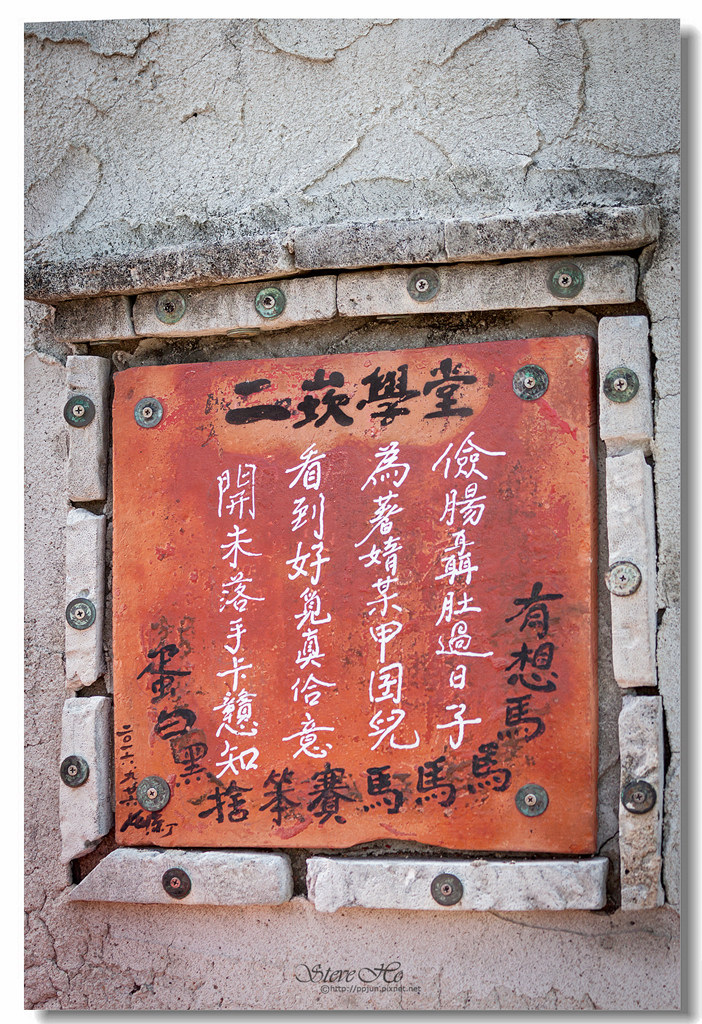 二崁學堂
儉腸凪肚過日子
為著婧某甲囝兒
看到好覓真佮意
開未落手卡戇知
有想馬馬馬馬賽笨捨
蛋白黑
Steve Ho
©http://ppjun.pixnet.net